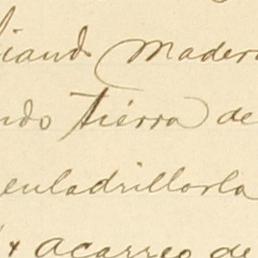 iando madera
ndo tierra de
enladrillorla
y acarreo de